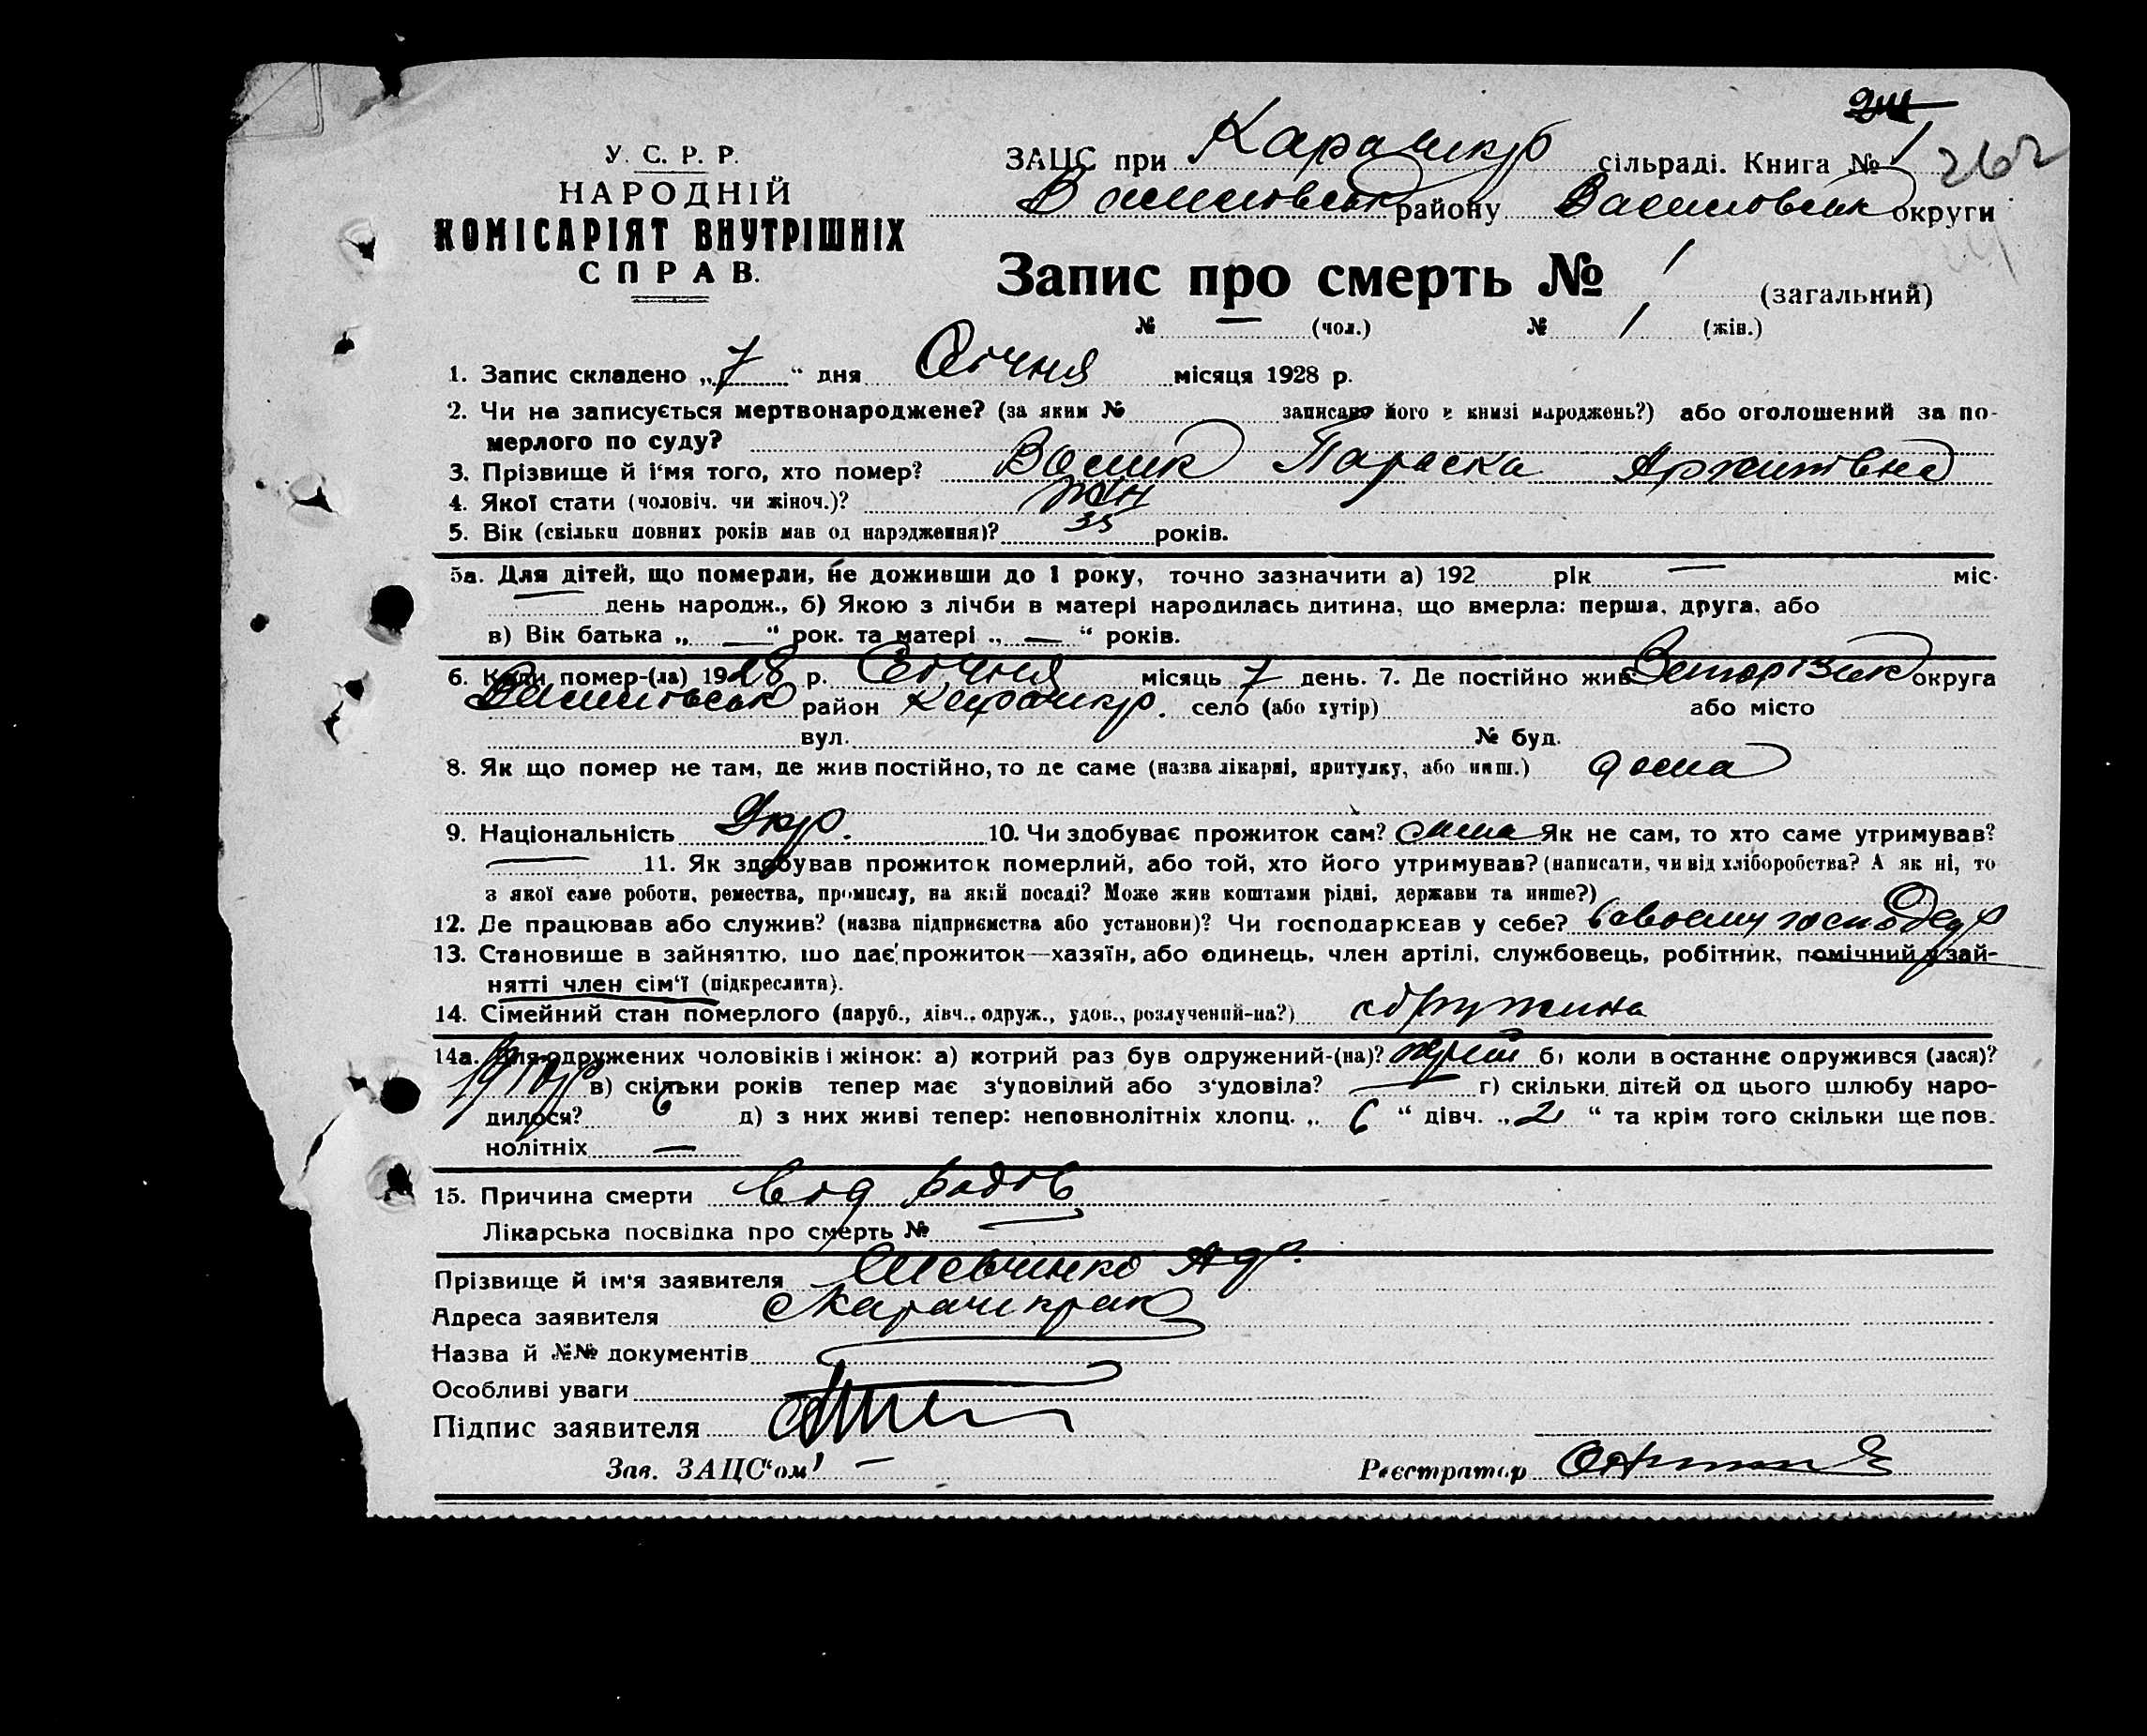 У. С. Р. Р.
НАРОДНІЙ
КОМІСАРІЯТ ВНУТРІШНІХ
СПРАВ.
ЗАЦС при сільраді. Книга № 1
262
району округи
Запис про смерть № 1 (загальний)
№ — (чол.) № 1 (жін.)
1. Запис складено „7“ дня Січня місяця 1928 р.
2. Чи не записується мертвонароджене? (за яким № записано його в книзі народжень?) або оголошений за по-
мерлого по суду?
3. Прізвище й і‘мя того, хто помер? Параска
4. Якої стати (чоловіч. чи жіноч.)? жін
5. Вік (скільки повних років мав од народження)? 35 років.
5а. Для дітей, що померли, не доживши до 1 року, точно зазначити а) 192 рік — міс.
— день народж., б) Якою з лічби в матері народилась дитина, що вмерла: перша, друга, або
в) Вік батька „—“ рок. та матері „—“ років.
6. Коли помер-(ла) 1928 р. Січня місяць 7 день. 7. Де постійно жив? округа
район село (або хутір) або місто
вул. № буд.
8. Як що помер не там, де жив постійно, то де саме (назва лікарні, притулку, або инш.) дома
9. Національність Укр. 10. Чи здобуває прожиток сам? сама Як не сам, то хто саме утримував?
— 11. Як здобував прожиток померлий, або той, хто його утримував? (написати, чи від хліборобства? А як ні, то
з якої саме роботи, ремества, промислу, на якій посаді? Може жив коштами рідні, держави та инше?)
12. Де працював або служив? (назва підприємства або установи)? Чи господарював у себе? в своему господар
13. Становище в зайняттю, що дає прожиток—хазяїн, або одинець, член артілі, службовець, робітник, помічний у зай-
нятті член сім‘ї (підкреслити).
14. Сімейний стан померлого (паруб., дівч., одруж., удов., розлучений-на?) дружина
14а. Для одружених чоловіків і жінок: а) котрий раз був одружений-(на)? б) коли в останнє одружився (лася)?
в) скільки років тепер має з‘уповілий або з‘удовіла? — г) скільки дітей од цього шлюбу наро-
дилося? 6 д) з них живі тепер: неповнолітніх хлопц. „6“ дівч. „2“ та крім того скільки ще пов.
нолітніх —
15. Причина смерти від
Лікарська посвідка про смерть № —
Прізвище й ім‘я заявителя
Адреса заявителя
Назва й №№ документів
Особливі уваги
Підпис заявителя
Зав. ЗАЦС‘ом — Реєстратор